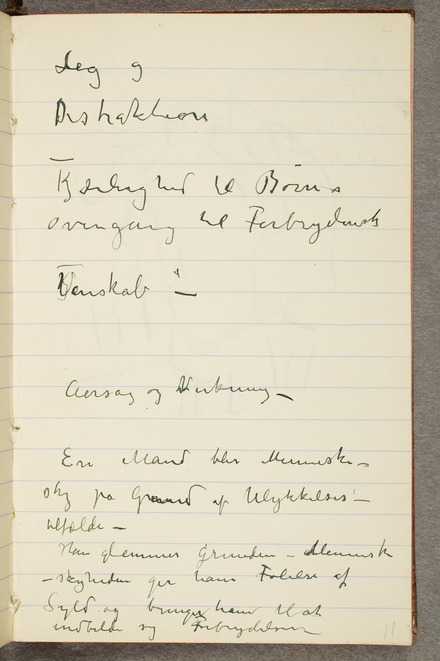 Leg og
Distraktion
Kjærlighed til Børn
overgang til Forbrydersk
Venskab " —
Aarsag og Virkning —
En Mand blir Menneske-
sky på Grund af Ulykkelses-
tilfælde —
Han glemmer Grunden — Mennesk
-skyheden gir ham Følelse af
Syld og bringer ham til at
indbilde sig Forbrydelser
11